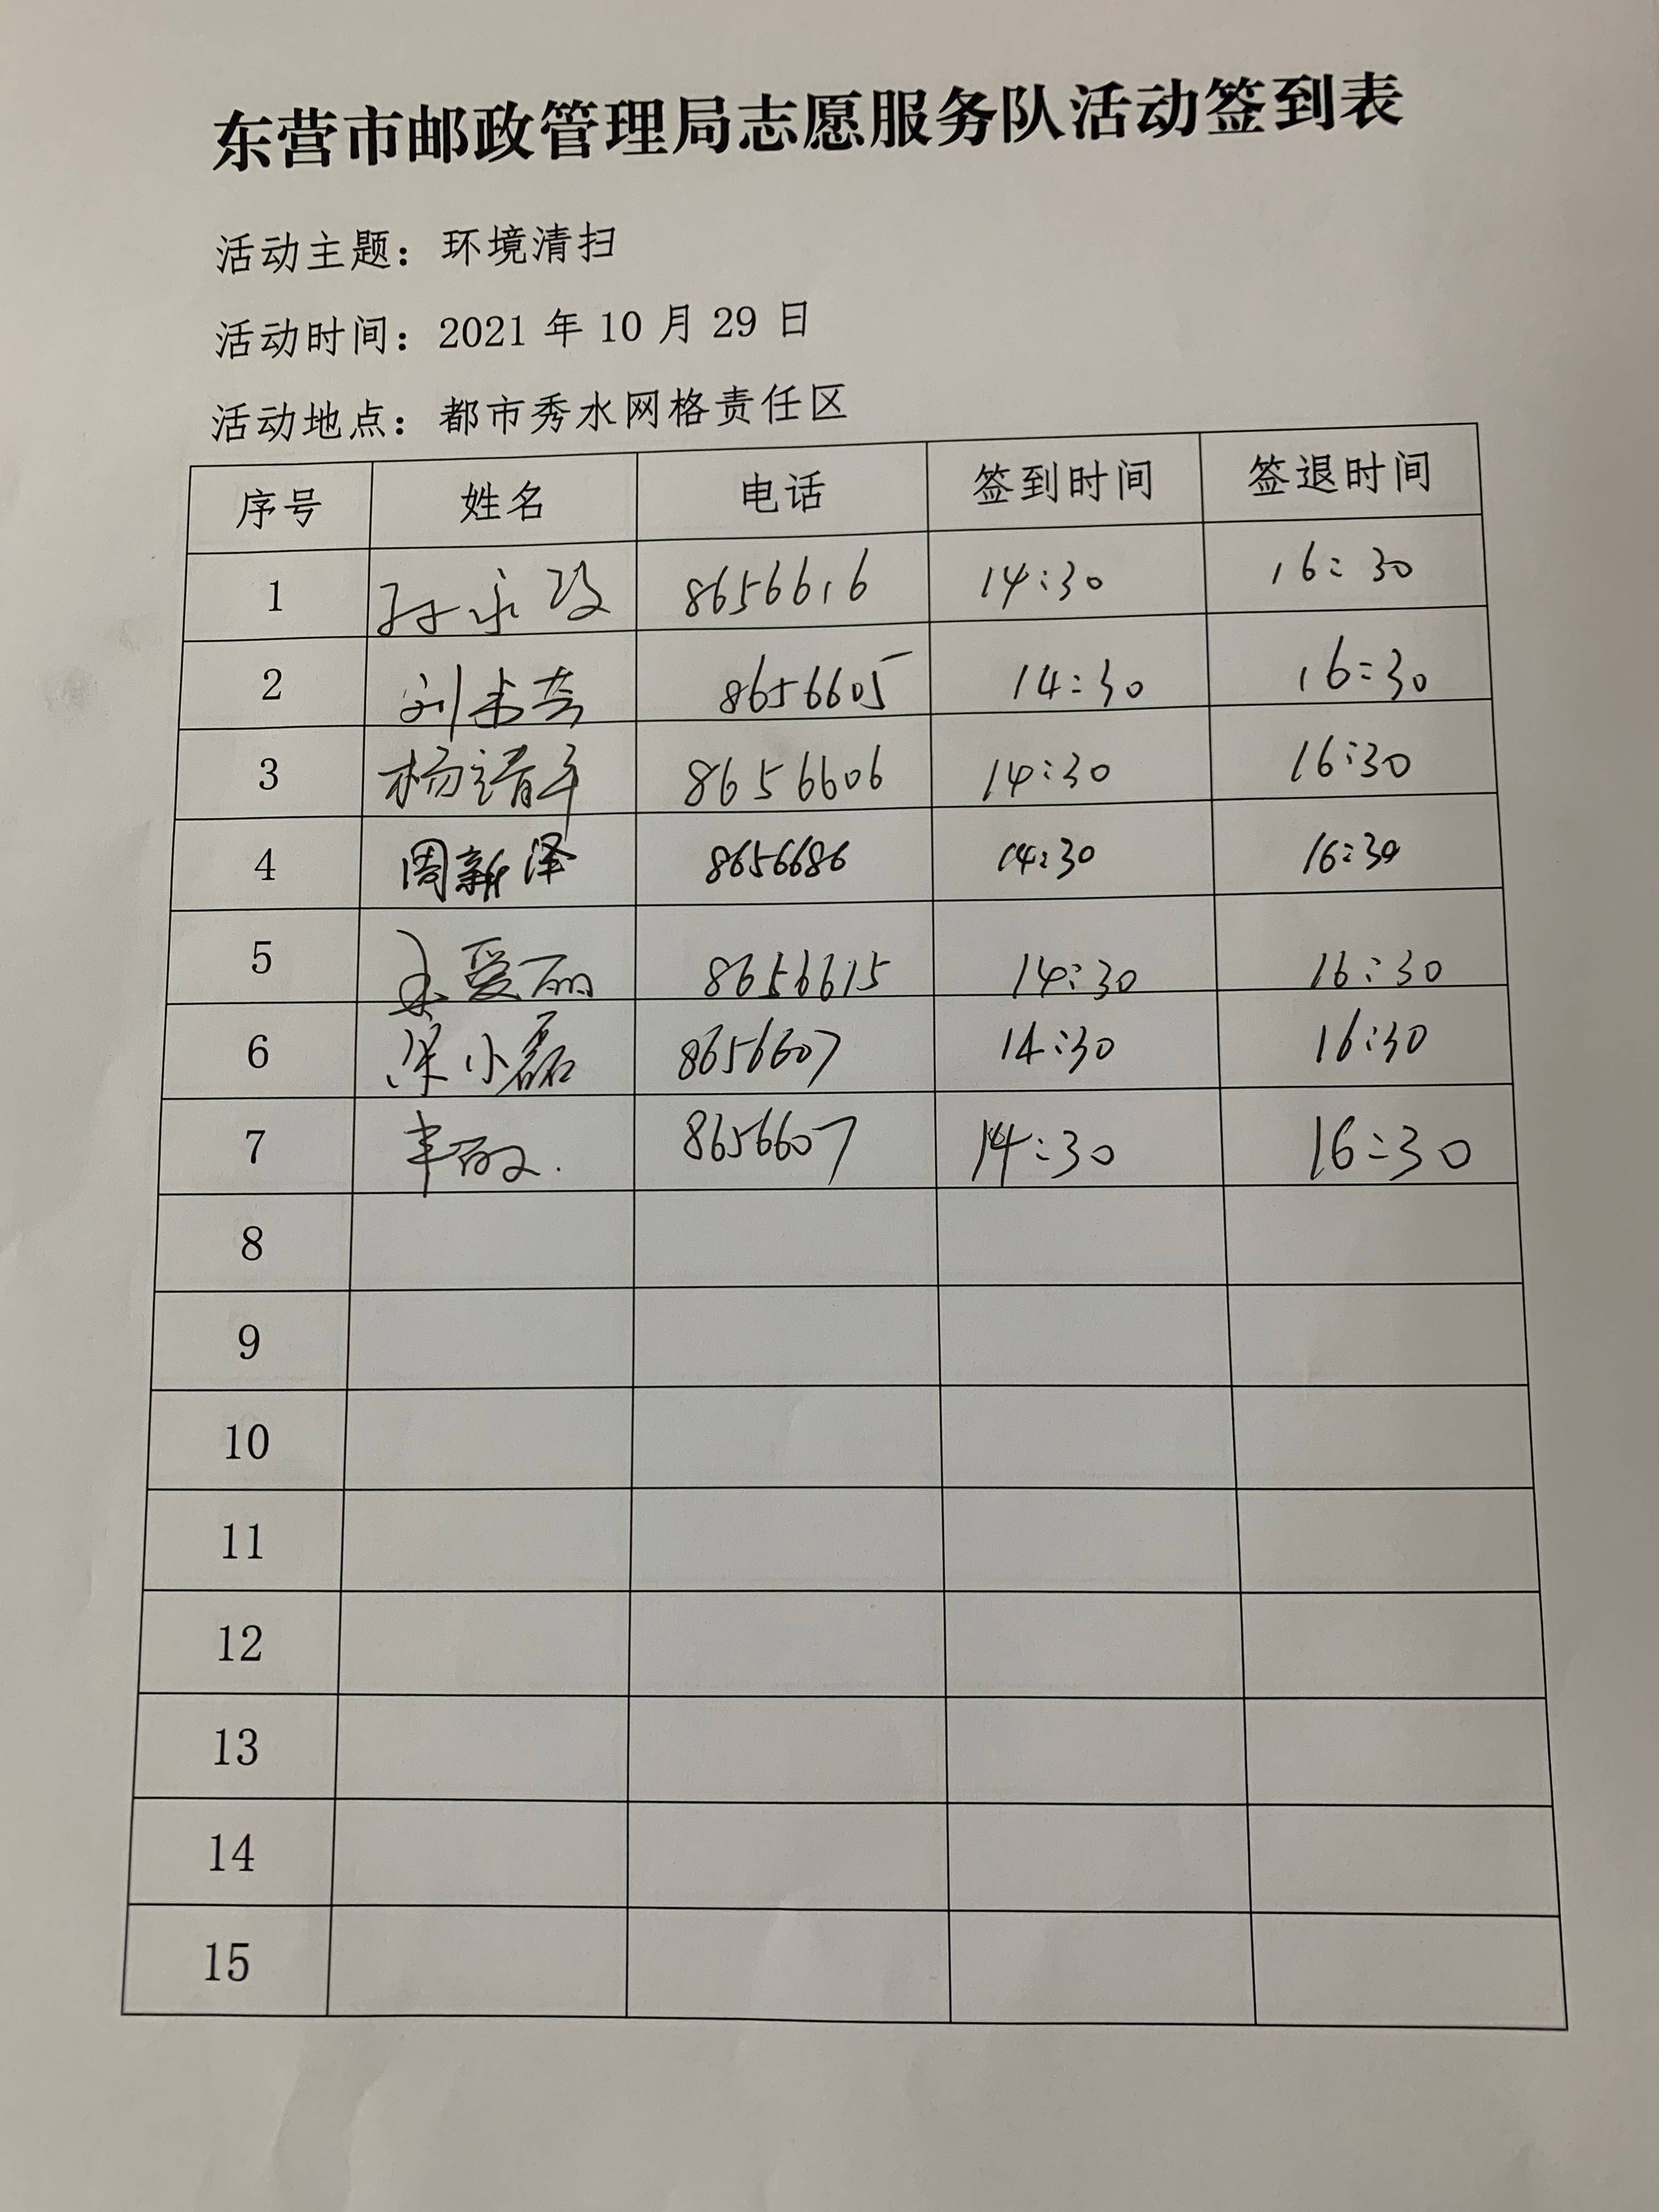 东营市邮政管理局志愿服务队活动签到表
活动主题：环境清扫
活动时间：2021 年 10 月 29 日
活动地点：都市秀水网格责任区
序号 姓名 电话 签到时间 签退时间
1 8656616 14:30 16:30
2 8656605 14:30 16:30
3 杨靖平 8656606 14:30 16:30
4 周新泽 8656686 14:30 16:30
5 爱丽 8656615 14:30 16:30
6 小磊 8656607 14:30 16:30
7 8656607 14:30 16:30
8
9
10
11
12
13
14
15